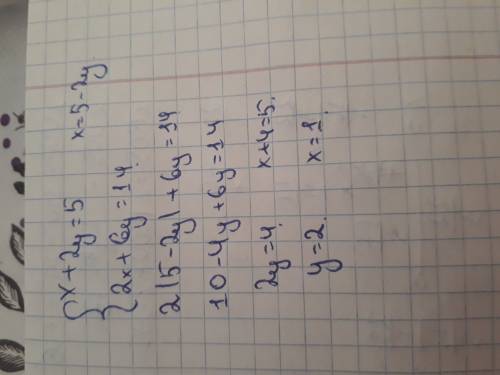 {x+2y=5 x=5-2y
{2x+6y=14.
2(5-2y)+6y=14
10-4y+6y=14
2y=4. x+4=5.
y=2. x=1.